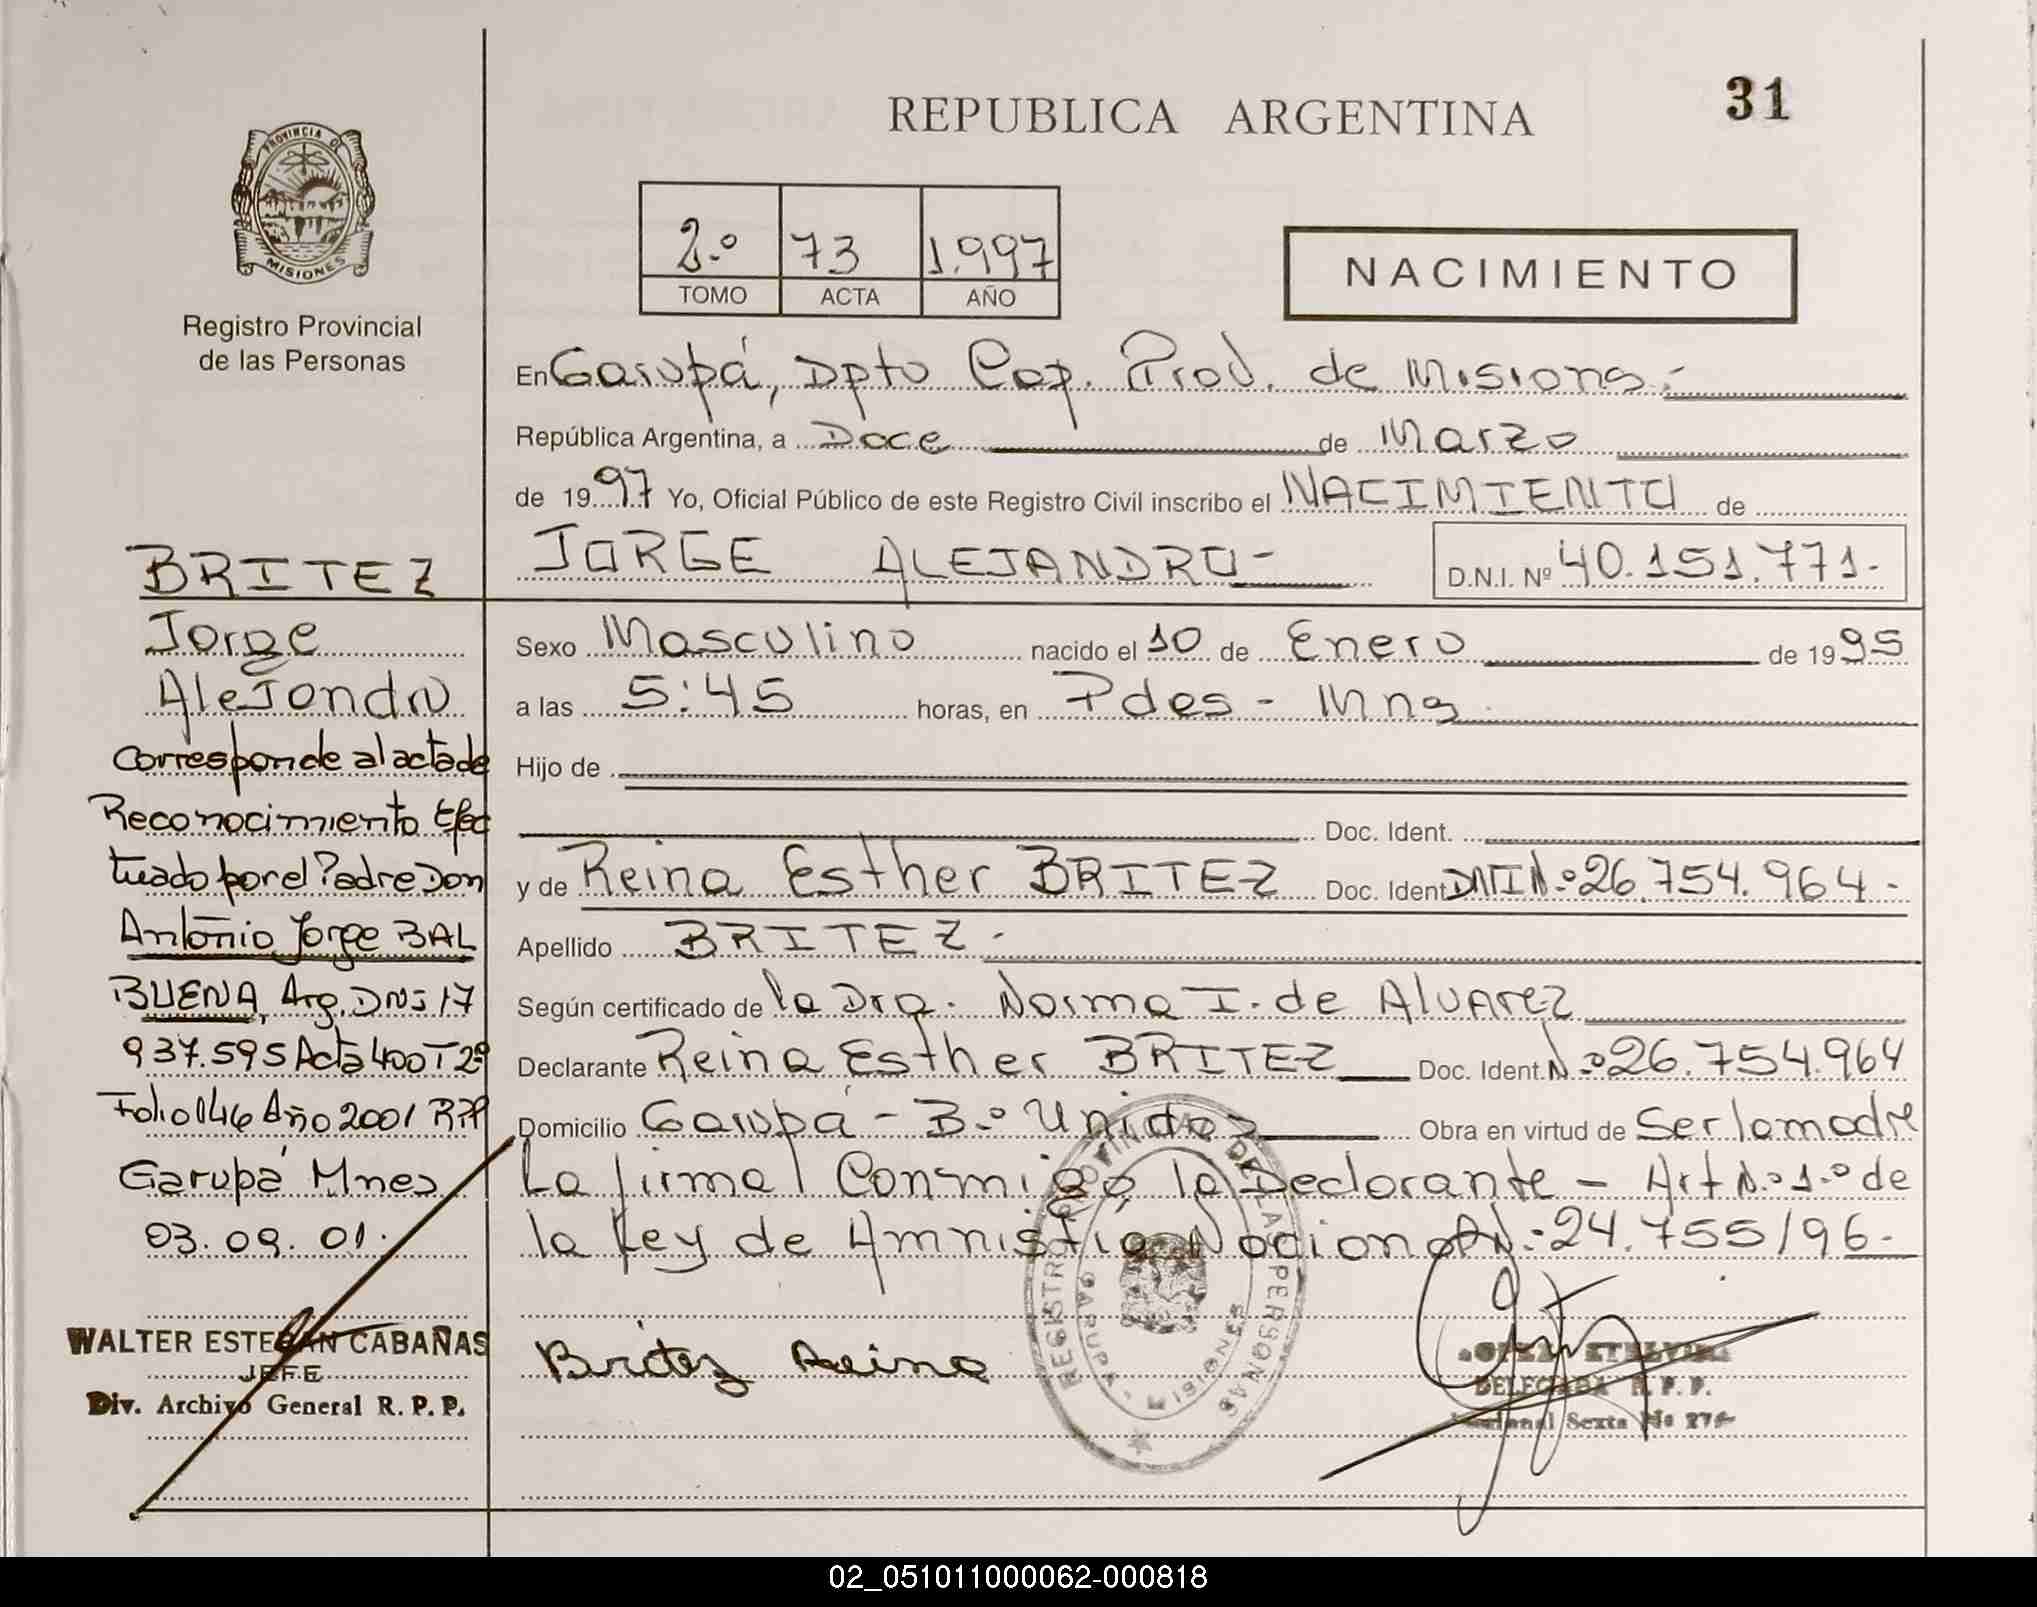 REPUBLICA ARGENTINA
31
PROVINCIA DE
MISIONES
Registro Provincial
de las Personas
2º 73 1.997
TOMO ACTA AÑO
NACIMIENTO
En Garupá, Dpto Cap. Prov. de Misiones.-
República Argentina, a Doce de Marzo
de 1997 Yo, Oficial Público de este Registro Civil inscribo el NACIMIENTO de
JORGE ALEJANDRO- D.N.I. Nº 40.151.771.-
Sexo Masculino nacido el 10 de Enero de 1995
a las 5:45 horas, en Pdas - Mns.
Hijo de
Doc. Ident.
y de Reina Esther BRITEZ Doc. Ident DNI Nº 26.754.964-
Apellido BRITEZ-
Según certificado de la Dra. Norma I. de Alvarez
Declarante Reina Esther BRITEZ Doc. Ident. Nº 26.754.964
Domicilio Garupá - Bº Unido Obra en virtud de Ser la madre
La firma Conmigo la Declarante - Art Nº 1º de
la Ley de Amnistia Nacional Nº 24.755/96-
Britez Reina
REGISTRO PROVINCIAL DE LAS PERSONAS
GARUPA - MISIONES
DELEGADA R. P. P.
Sexta
BRITEZ
Jorge
Alejandro
Corresponde al acta de
Reconocimiento Efec
tuado por el Padre Don
Antonio Jorge BAL
BUENA, Arg. DNI 17
937.595 Acta 400 T 2º
Folio 146 Año 2001 RPP
Garupá Mnes
03.09.01.
WALTER ESTEBAN CABAÑAS
JEFE
Div. Archivo General R. P. P.
02_051011000062-000818